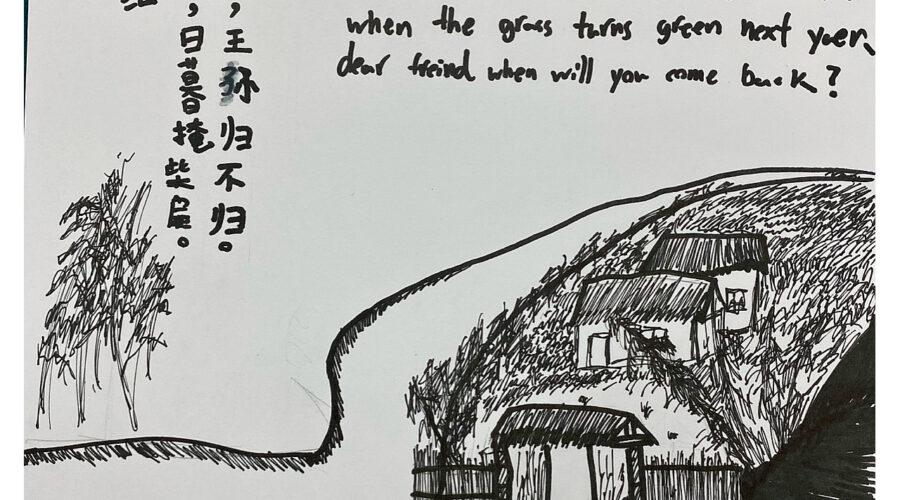 ，日暮掩柴扉。
，王孙归不归。
when the grass turns green next year,
dear freind when will you come back?